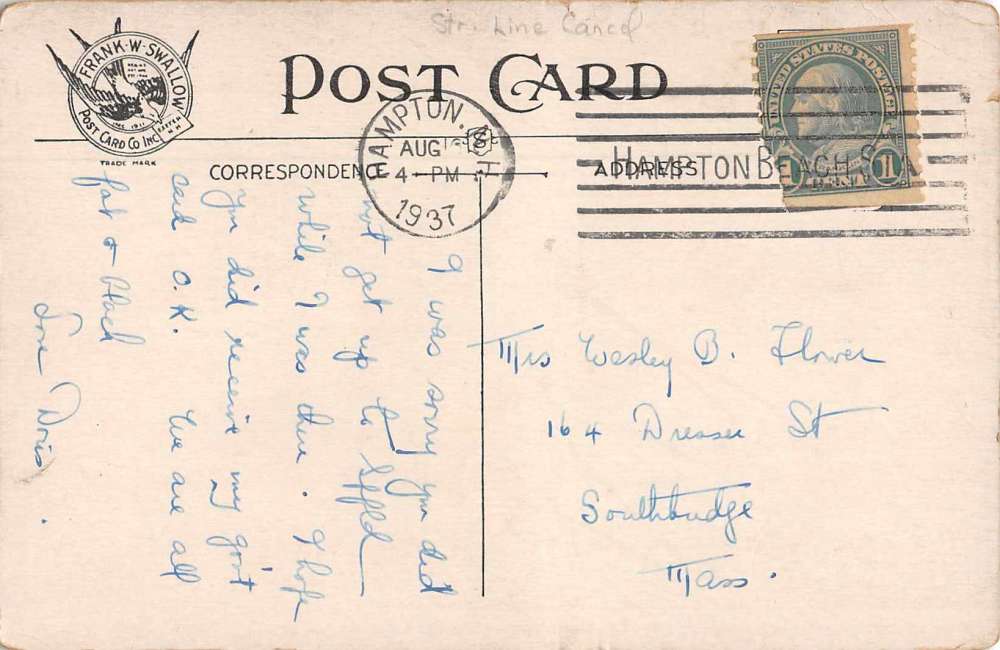 Str. Line Cancel
FRANK·W·SWALLOW
POST CARD CO INC
TRADE MARK
POST CARD
HAMPTON, N H
AUG
4-PM
1937
HAMPTON BEACH S
UNITED STATES POSTAGE
1 1
CORRESPONDENCE
ADDRESS
I was sorry you did
not get up to Spfld
while I was there. I hope
you did receive my
card O.K. We are all
fat & black
Love Doris.
Mrs Wesley B. Flower
164 Dresser St
Southbridge
Mass.